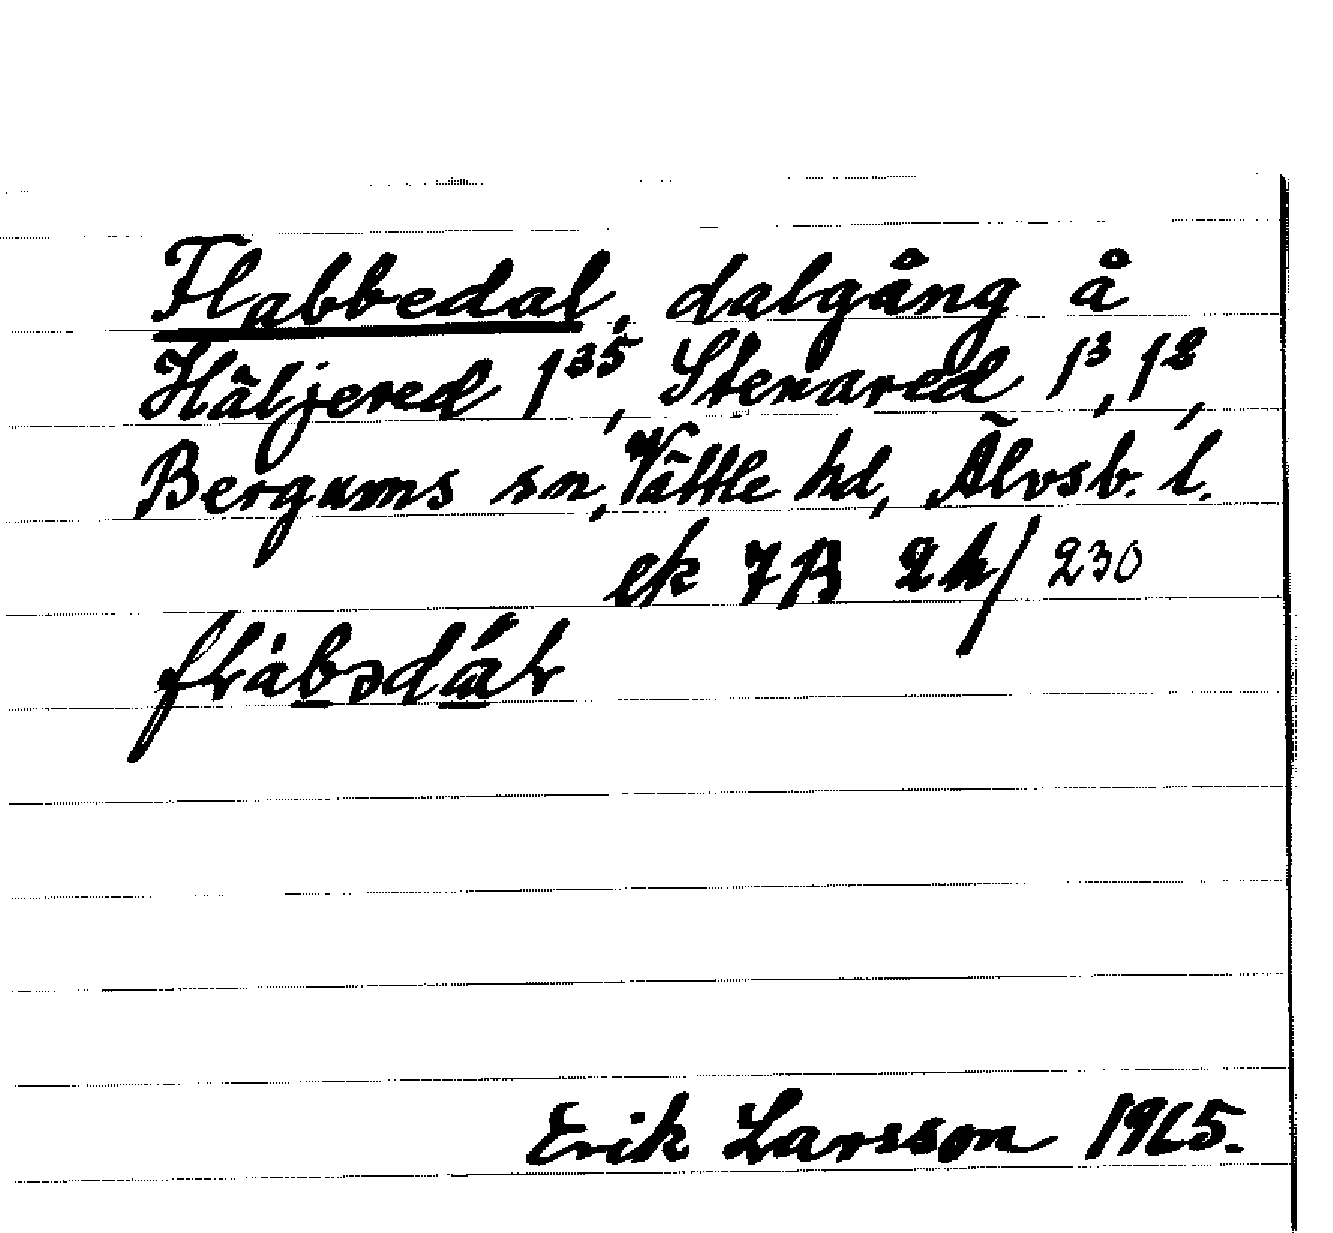 Flabbedal, dalgång å
Häljered 1³⁵, Stenared 1³, 1²,
Bergums sn, Vättle hd, Älvsb. l.
ek 7B 2h/230
Erik Larsson 1965.